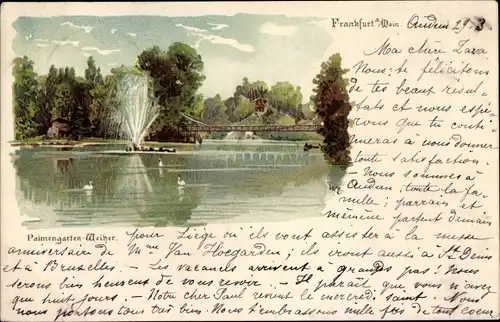 Frankfurt a/Main. Auden 29 3
Ma chère Zaza
Nous te félicitons
de tes beaux résul-
tats et nous espé-
rons que tu conti-
nueras à nous donner
toute satisfaction.
- Nous sommes à
Auden, toute la fa-
mille; parrain et
mémère partent demain
Palmengarten-Weiher.
pour Liége où ils vont assister à la messe
anniversaire de Mme Van Hoegarden; ils iront aussi à St Denis
et à Bruxelles. - Les vacances arrivent à grands pas! Nous
serons bien heureux de vous revoir. - Il paraît que vous n'avez
que huit jours. - Notre cher Paul revient le mercredi saint. - Nous
nous portons tous très bien. Nous t'embrassons mille fois de tout cœur